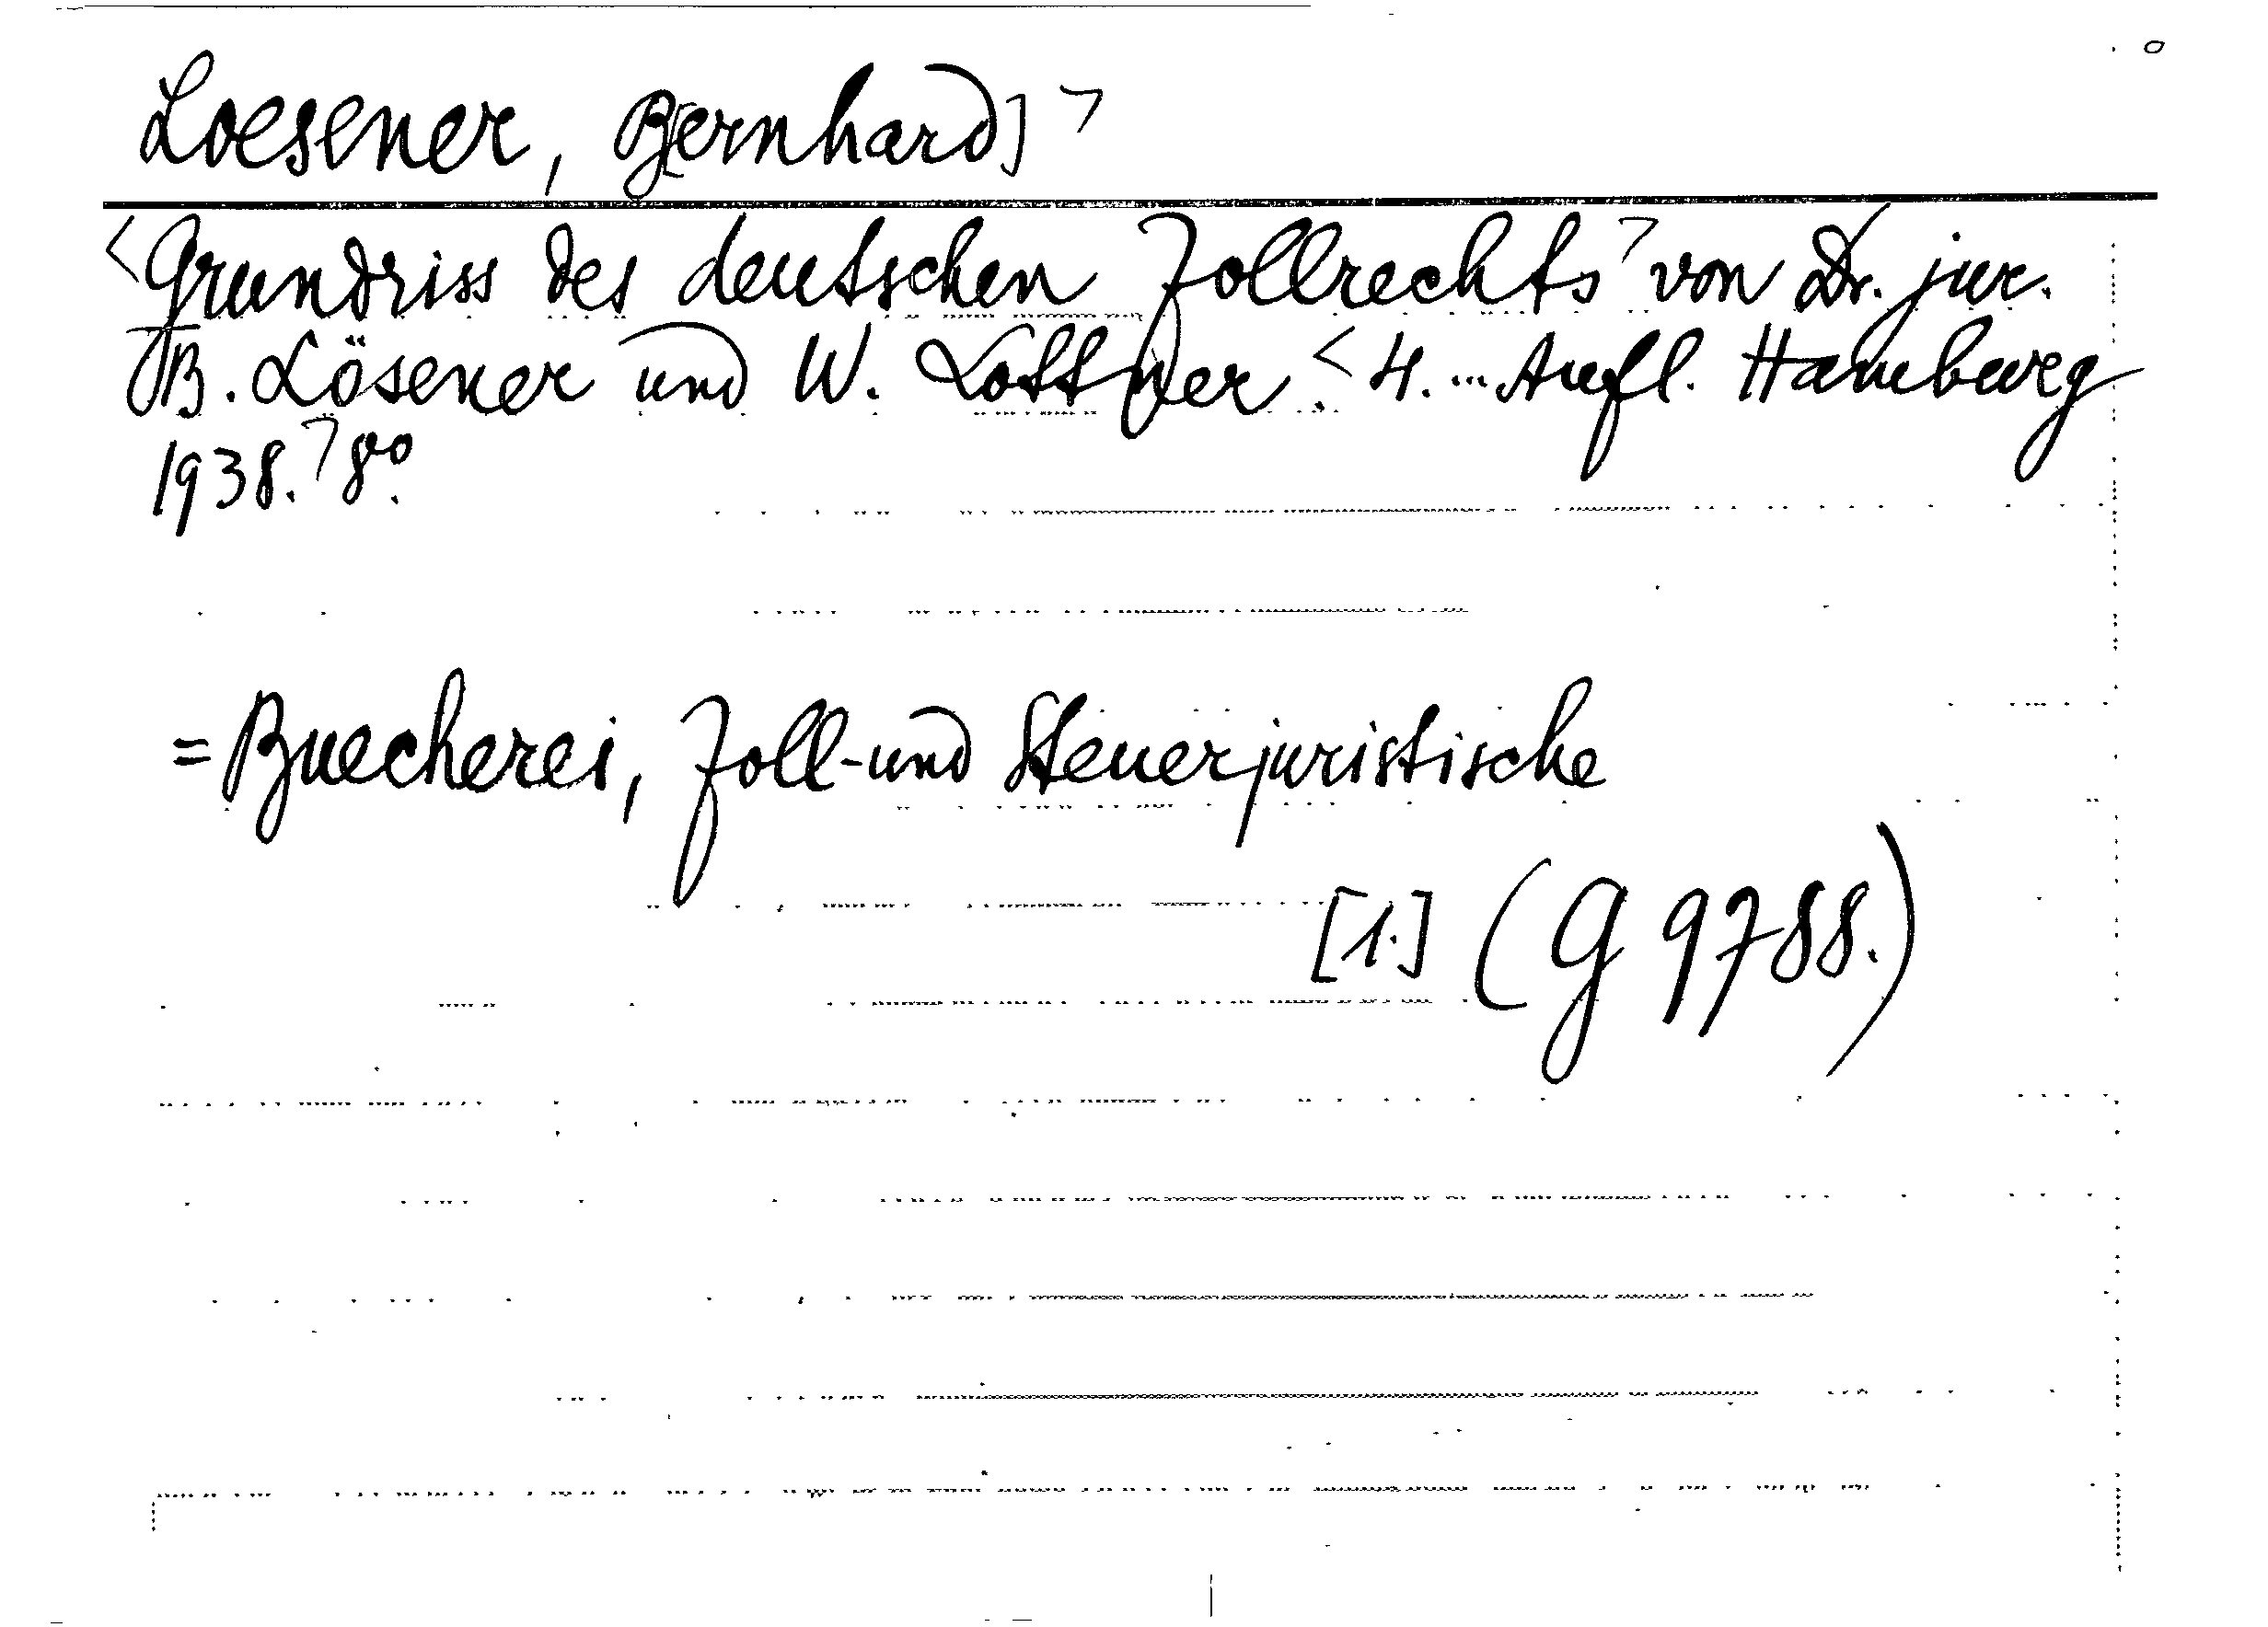 Loesener, B[ernhard] >
<Grundriss des deutschen Zollrechts> von Dr. jur.
B. Lösener und W. Lottner. <4. ... Aufl. Hamburg
1938.> 8º.
= Buecherei, Zoll- und Steuerjuristische
[1.] (G 9788.)